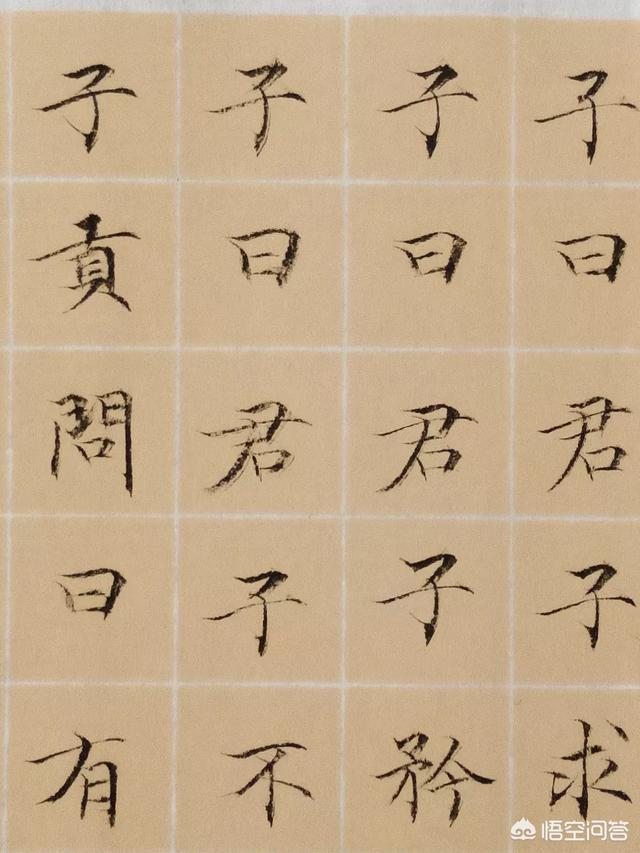 子曰君子求
子曰君子矜
子曰君子不
子貢問曰有
悟空问答